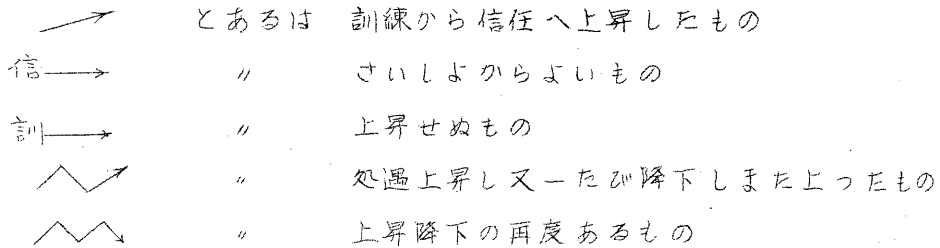 とあるは 訓練から信任へ上昇したもの
信 〃 さいしよからよいもの
訓 〃 上昇せぬもの
〃 処遇上昇し又一たび降下しまた上ったもの
〃 上昇降下の再度あるもの